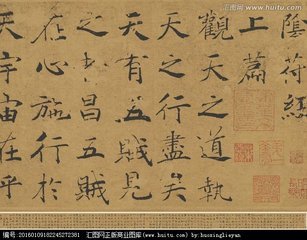 陰符經
上篇
觀天之道執
天之行盡矣
天有五賊見
之者昌五賊
在心施行於
天宇宙在乎
汇图网
www.huitu.com
号:20160109182245272381 汇图网正版商业图库:www.huitu.com by:huoxinglieyan